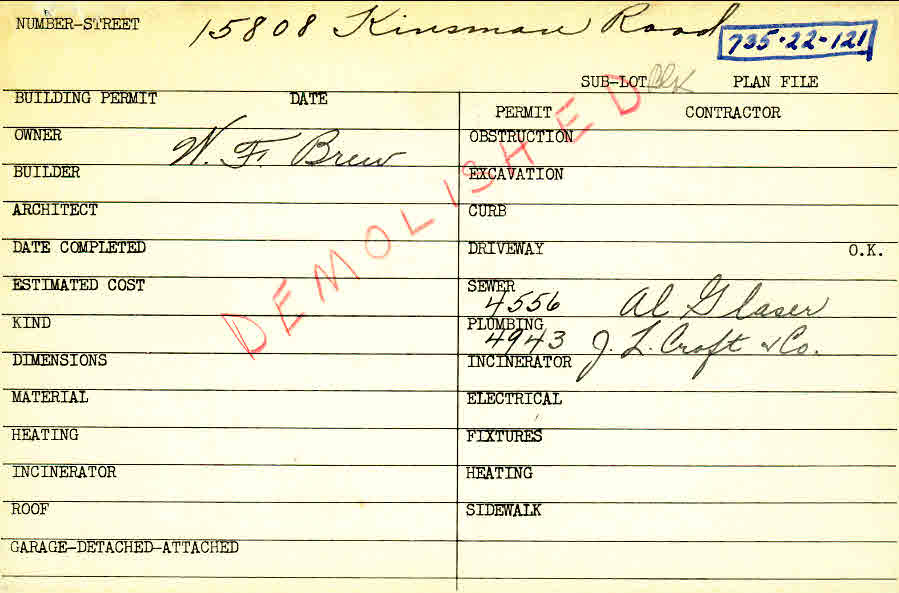 NUMBER-STREET 15808 Kinsman Road 735-22-121
SUB-LOT Blk PLAN FILE
BUILDING PERMIT DATE
PERMIT CONTRACTOR
OWNER W. F. Brew
OBSTRUCTION
BUILDER
EXCAVATION
ARCHITECT
CURB
DATE COMPLETED
DRIVEWAY O.K.
ESTIMATED COST
SEWER
4556 Al Glaser
KIND
PLUMBING
4943 J. L. Croft & Co.
DIMENSIONS
INCINERATOR
MATERIAL
ELECTRICAL
HEATING
FIXTURES
INCINERATOR
HEATING
ROOF
SIDEWALK
GARAGE-DETACHED-ATTACHED
DEMOLISHED